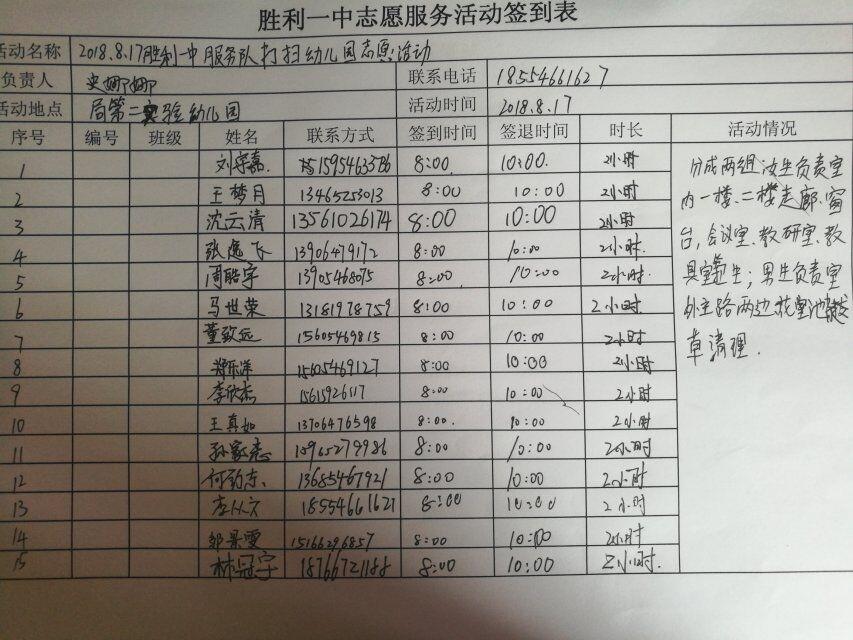 胜利一中志愿服务活动签到表
活动名称 2018.8.17胜利一中服务队打扫幼儿园志愿活动
负责人 史娜娜 联系电话 18554661627
活动地点 局第二实验幼儿园 活动时间 2018.8.17
序号 编号 班级 姓名 联系方式 签到时间 签退时间 时长 活动情况
1 刘宇嘉 8:00. 10:00. 2小时
2 王梦月 13465253013 8:00 10:00 2小时
3 沈云清 13561026174 8:00 10:00 2小时
4 张逸飞 13906479172 8:00 10:00 2小时.
5 周皓宇 13905468075 8:00 10:00 2小时.
6 马世荣 13181978759 8:00 10:00 2小时.
7 董致远 15605469815 8:00 10:00 2小时
8 15605469127 8:00 10:00 2小时
9 李欣杰 15615926117 8:00 10:00 2小时
10 王真如 13706476598 8:00. 10:00 2小时
11 孙家亮 15965279986 8:00 10:00 2小时
12 何劲志 13685467921 8:00 10:00 2小时
13 18554661627 8:00 10:00 2小时
14 邹景雯 15166296857 8:00 10:00 2小时
15 林冠宇 18766721188 8:00 10:00 2小时.
分成两组女生负责室
内一楼、二楼走廊、窗
台,会议室、教研室、教
具室卫生;男生负责室
外主路两边花池拔
草清理.